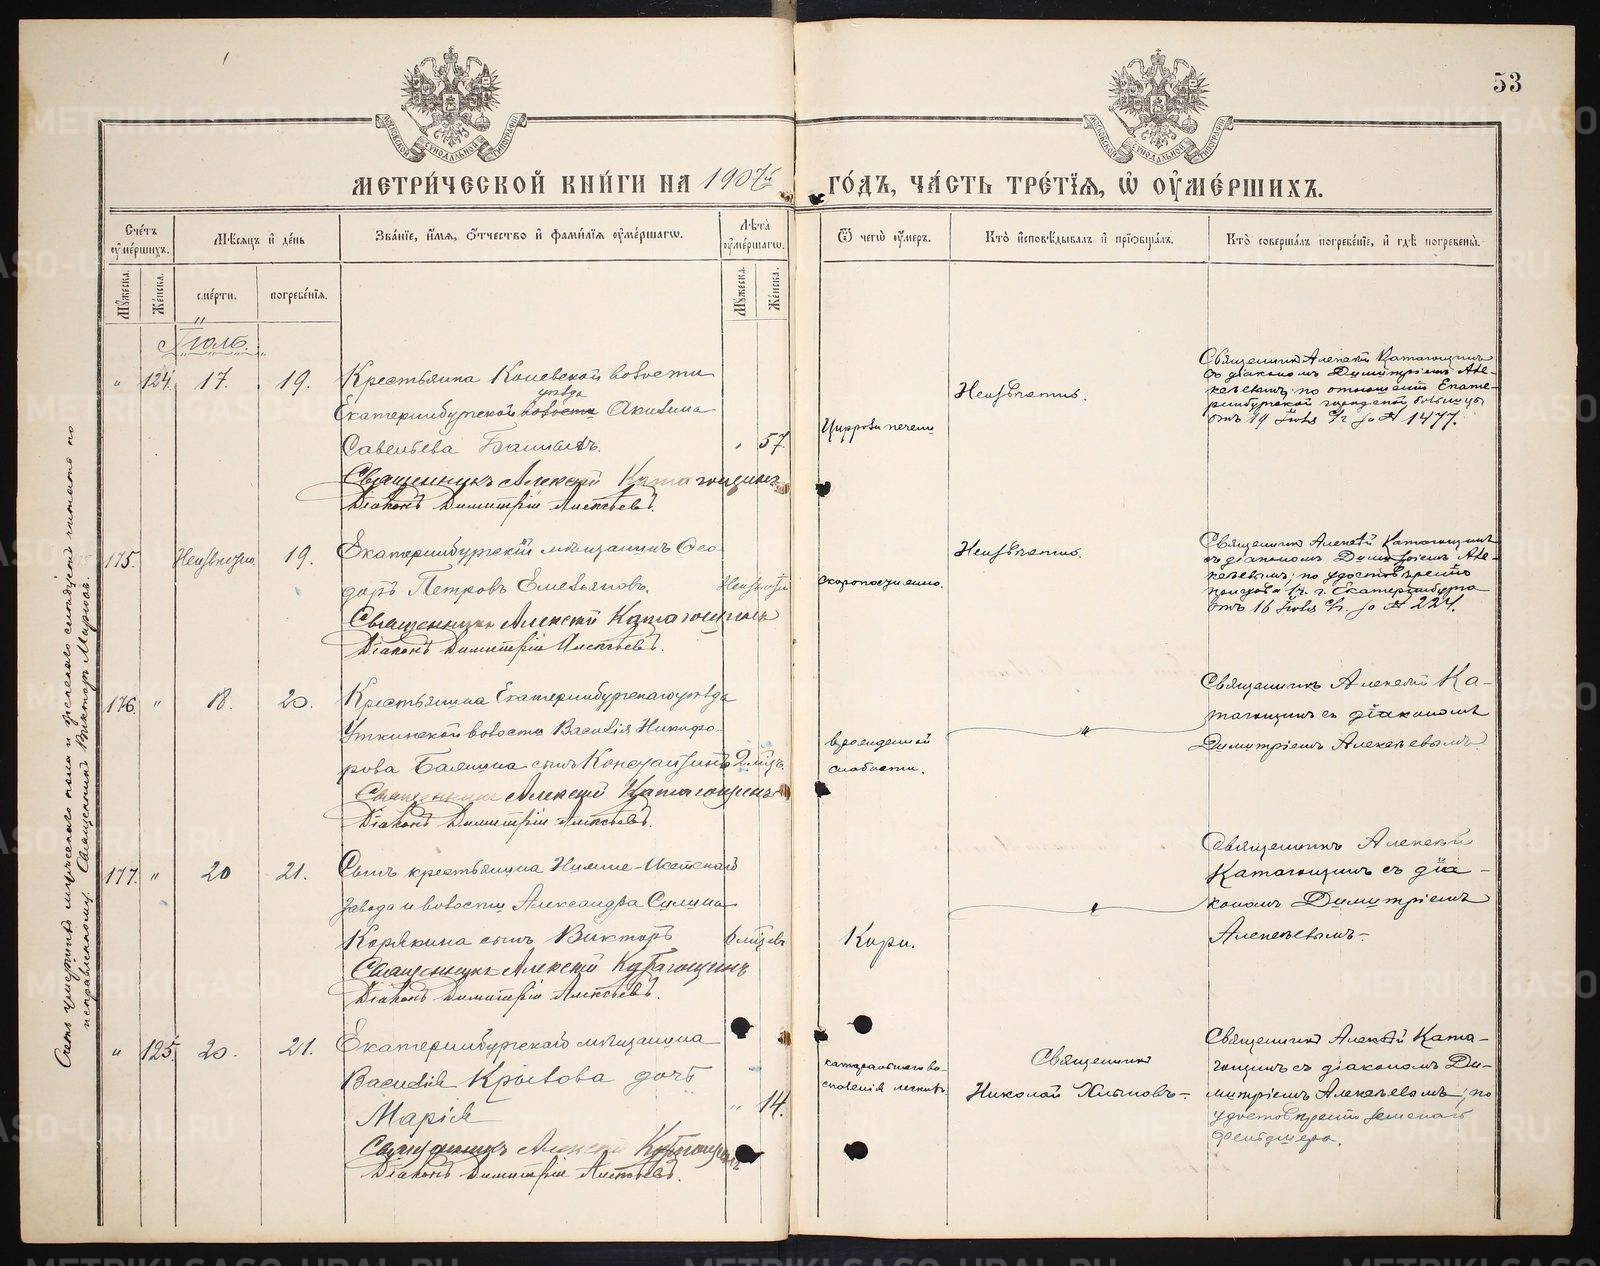 53
МЕТРИ́ЧЕСКОЙ КНИ́ГИ НА 1907й ГО́ДЪ, ЧА́СТЬ ТРЕ́ТЇѦ, Ѡ ОУМЕ́РШИХЪ.
Сче́тъ оуме́ршихъ.
Мѣ́сѧцъ и҆ де́нь
Зва́нїе, и҆́мѧ, ѻ҆́тчество и҆ фами́лїѧ оуме́ршагѡ.
Лѣ́та оуме́ршагѡ.
Ѿ чегѡ̀ оу́меръ.
Кто̀ и҆сповѣ́дывалъ и҆ прїѡбща́лъ.
Кто̀ соверша́лъ погребе́нїе, и҆ гдѣ̀ погребены̀.
Мꙋ́жеска.
Же́нска.
сме́рти.
погребе́нїѧ.
Мꙋ́жеска.
Же́нска.
Іюль.
" 124. 17. 19.
Крестьянка Коневской волости
уѣзда
Екатеринбургской волости Акилина
Савельева
" 57.
Священникъ Алексѣй Катагощинъ
Діаконъ Димитрій Алексѣевъ.
Цирроза печени
Неизвѣстно.
Священникъ Алексѣй Катагощинъ
съ діакономъ Димитріемъ Але-
ксѣевымъ; по отношенію Екате-
ринбургской городской больницы
отъ 19 Іюля с/г за № 1477.
175. Неизвѣстно. 19.
Екатеринбургскій мѣщанинъ Ѳео-
доръ Петровъ Емельяновъ.
Неизвѣстно
Священникъ Алексѣй Катагощинъ
Діаконъ Димитрій Алексѣевъ.
Скоропостижно.
Неизвѣстно.
Священникъ Алексѣй Катагощинъ
съ діакономъ Димитріемъ Але-
ксѣевымъ; по удостовѣренію
г. Екатеринбурга
отъ 16 Іюля с/г. за № 224.
176. " 18. 20.
Крестьянина Екатеринбургскаго уѣзда
Уткинской волости Василія Никифо-
рова Балешна сынъ Константинъ
2 мѣс.
Священникъ Алексѣй Катагощинъ
Діаконъ Димитрій Алексѣевъ.
врожденной
слабости.
"
Священникъ Алексѣй Ка-
тагощинъ съ діакономъ
Димитріемъ Алексѣевымъ.
177. " 20 21.
Сынъ крестьянина Нижне-Исетскаго
завода и волости Александра Силина
Корякина сынъ Викторъ
6 мѣсяц.
Священникъ Алексѣй Катагощинъ
Діаконъ Димитрій Алексѣевъ.
Кори.
"
Священникъ Алексѣй
Катагощинъ съ діа-
кономъ Димитріемъ
Алексѣевымъ.
" 125. 20. 21.
Екатеринбургскаго мѣщанина
Василія Крылова дочь
Марія
" 14.
Священникъ Алексѣй Катагощинъ
Діаконъ Димитрій Алексѣевъ.
катаральнаго во-
спаленія легкихъ
Священникъ
Николай Хлыновъ.
Священникъ Алексѣй Ката-
гощинъ съ діакономъ Ди-
митріемъ Алексѣевымъ; по
удостовѣренію земскаго
фельдшера.
Счетъ умершихъ мужескаго пола и женскаго слѣдуетъ читать по
исправленному. Священникъ Викторъ